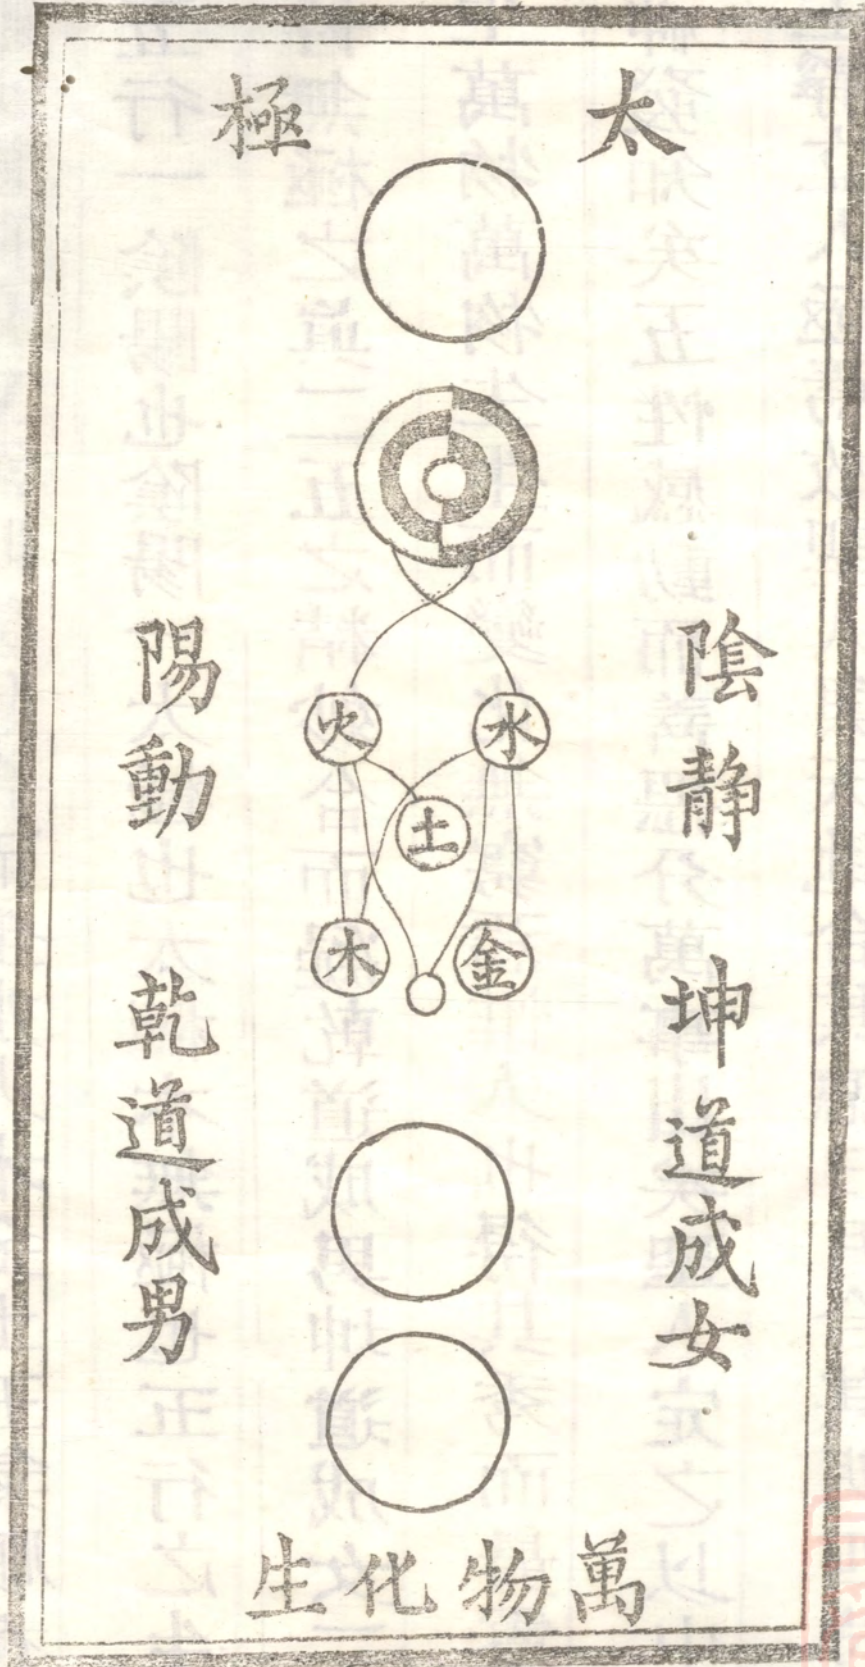 太極
陰靜
陽動
火
水
土
木
金
坤道成女
乾道成男
萬物化生